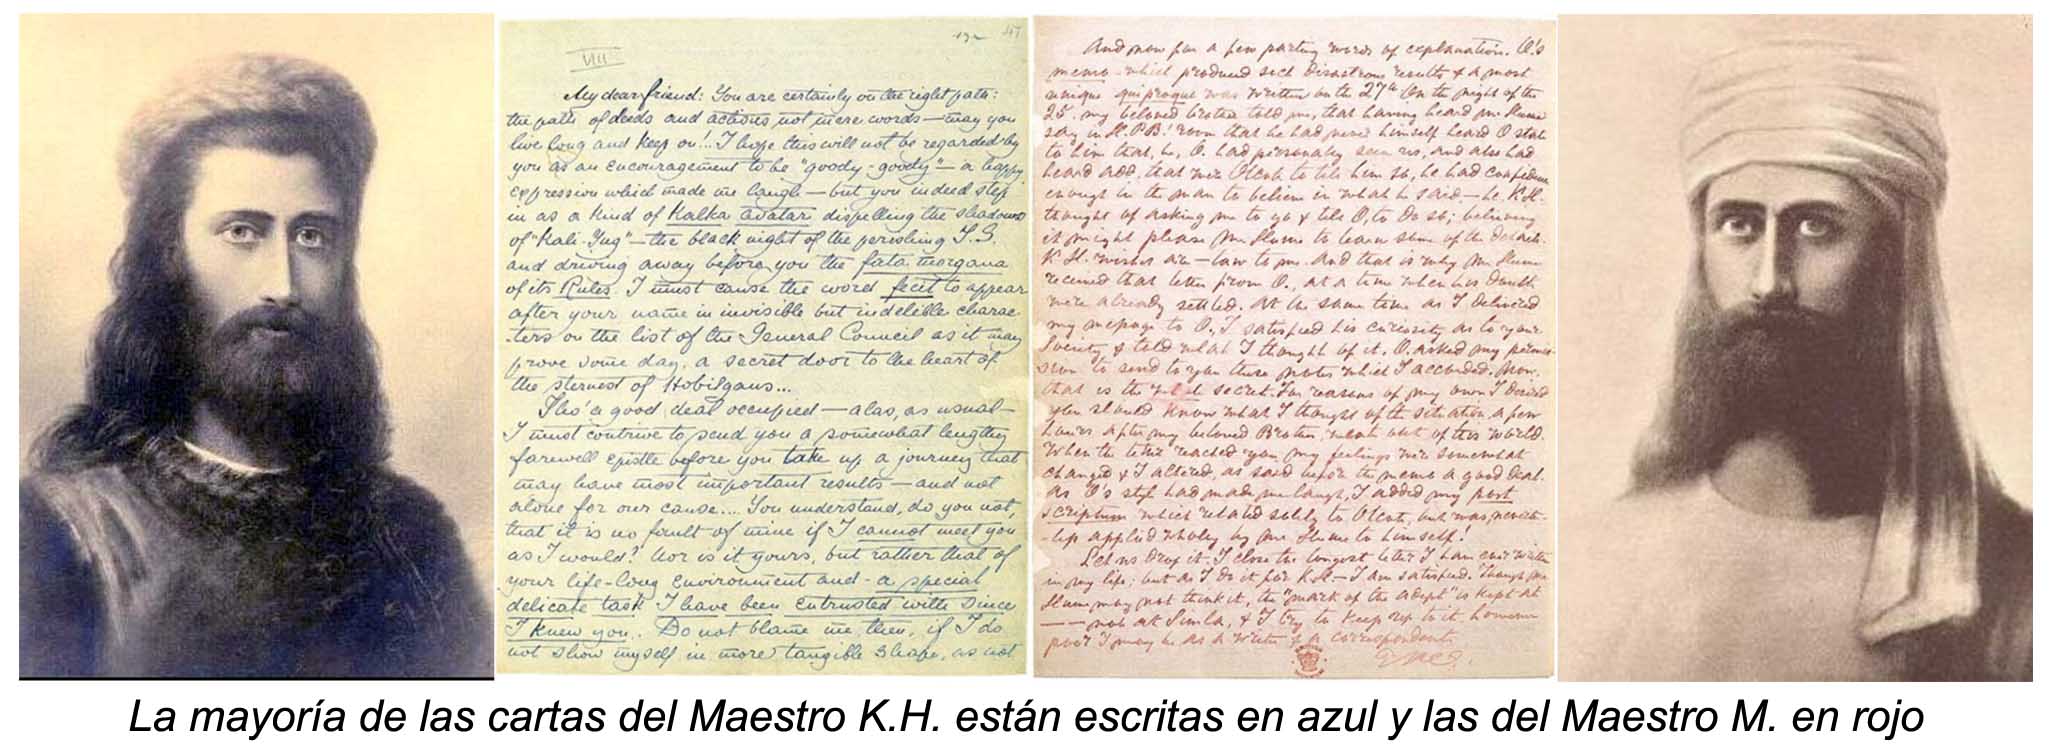 192 45
VIII
My dear friend: You are certainly on the right path:
the path of deeds and actions, not mere words — may you
live long and keep on!... I hope this will not be regarded by
you as an encouragement to be "goody-goody" — a happy
expression which made me laugh — but you indeed step
in as a kind of Kalka avatar dispelling the shadows
of "Kali-Yug" — the black night of the perishing T.S.
and driving away before you the fata morgana
of its Rules. I must cause the word fecit to appear
after your name in invisible but indelible charac-
-ters on the list of the General Council as it may
prove some day, a secret door to the heart of
the sternest of Hobilgans...
Tho' a good deal occupied — alas, as usual —
I must contrive to send you a somewhat lengthy
farewell epistle before you take up a journey that
may have most important results — and not
alone for our cause... You understand, do you not,
that it is no fault of mine if I cannot meet you
as I would? Nor is it yours, but rather that of
your life-long environment and a special
delicate task I have been entrusted with since
I knew you. Do not blame me then, if I do
not show myself in more tangible shape, as not
And now for a few parting words of explanation. O's
memo which produced such disastrous results & a most
unique quiproquo was written on the 27th. On the night of the
25. my beloved brother told me, that having heard Mr Hume
say in H.P.B.' room that he had never himself heard O state
to him that, he, O. had personally seen us, and also had
heard add, that were Olcott to tell him so, he had confidence
enough in the man to believe in what he said — he, K.H.
thought of asking me to go & tell O, to do so; believing
it might please Mr Hume to learn some of the details.
K H. wishes are — law to me. And that is why Mr Hume
received that letter from O., at a time when his doubts
were already settled. At the same time as I delivered
my message to O., I satisfied his curiosity as to your
Society & told what I thought of it. O. asked my permis-
sion to send to you these notes which I accorded. Now,
that is the whole secret. For reasons of my own I desired
you should know what I thought of the situation, a few
hours after my beloved Brother, went out of this world.
When the letter reached you my feelings were somewhat
changed & I altered, as said before the memo a good deal.
As O's style had made me laugh, I added my post
scriptum which related solely to Olcott, but was, never-
applied wholly by Mr Hume to himself!
Let us drop it. I close the longest letter I have ever written
in my life; but as I do it for K.H — I am satisfied. Though Mr
Hume may not think it, the "mark of the adept" is kept at
— — not at Simla, & I try to keep up to it, however
poor I may be as a writer & a correspondent.
La mayoría de las cartas del Maestro K.H. están escritas en azul y las del Maestro M. en rojo